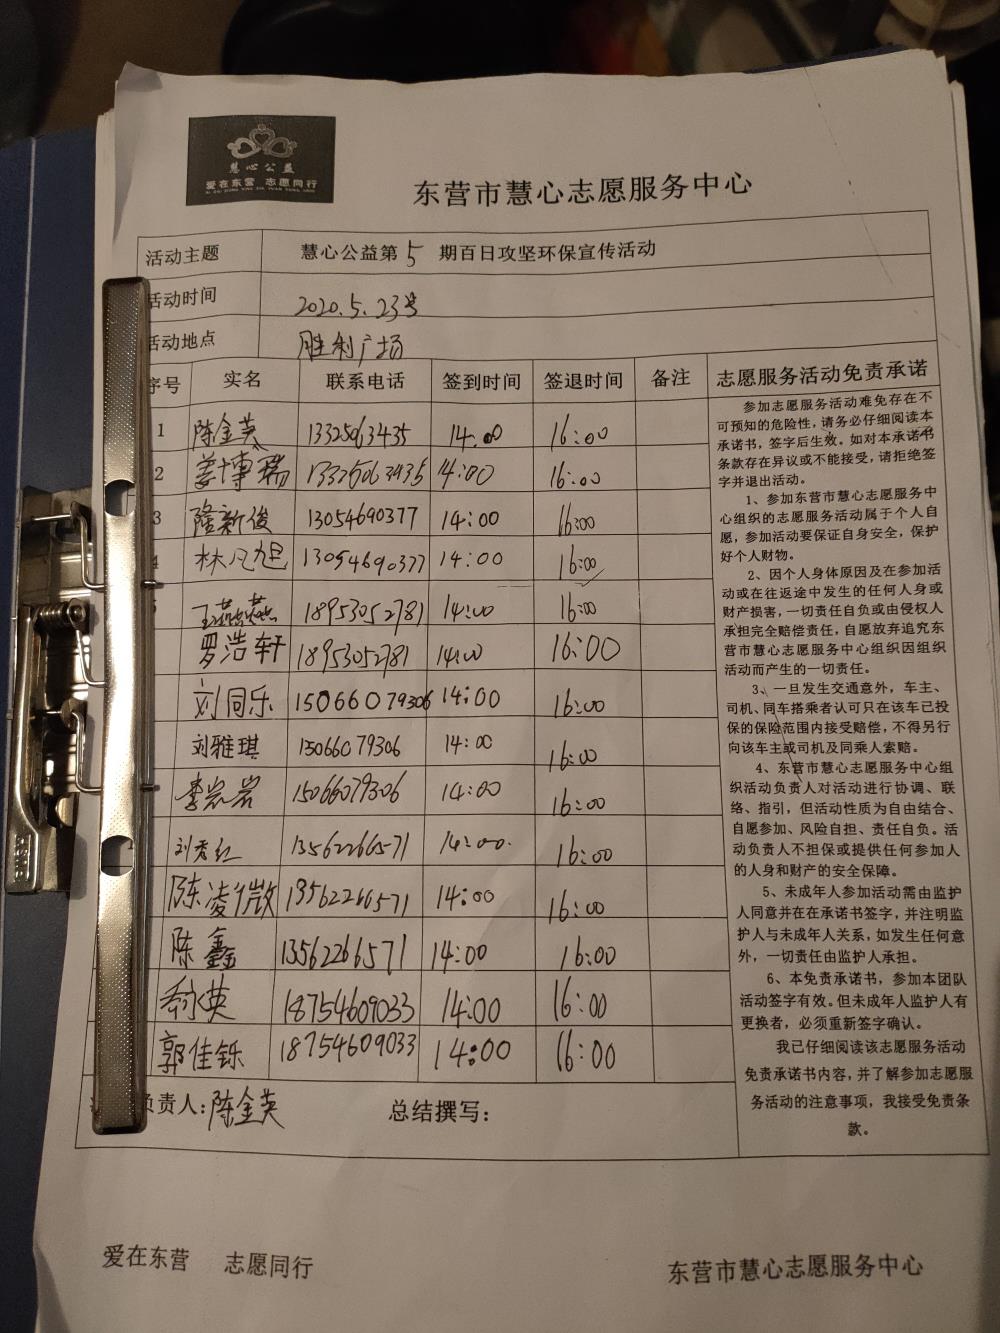 慧心公益
爱在东营 志愿同行
东营市慧心志愿服务中心
活动主题 慧心公益第5期百日攻坚环保宣传活动
活动时间 2020.5.23号
活动地点 胜利广场
序号 实名 联系电话 签到时间 签退时间 备注 志愿服务活动免责承诺
1 陈金英 13325063435 14:00 16:00
2 姜博瑞 13325063435 14:00 16:00
3 隆新俊 13054690377 14:00 16:00
林凡旭 13054690377 14:00 16:00
王燕燕 18953052781 14:00 16:00
罗浩轩 18953052781 14:00 16:00
刘同乐 15066079306 14:00 16:00
刘雅琪 15066079306 14:00 16:00
李岩 15066079306 14:00 16:00
刘秀红 13562266571 14:00. 16:00
陈凌微 13562266571 14:00 16:00
陈鑫 13562266571 14:00 16:00
英 18754609033 14:00 16:00
郭佳铄 18754609033 14:00 16:00
负责人:陈金英 总结撰写:
参加志愿服务活动难免存在不
可预知的危险性,请务必仔细阅读本
承诺书,签字后生效。如对本承诺书
条款存在异议或不能接受,请拒绝签
字并退出活动。
1、参加东营市慧心志愿服务中
心组织的志愿服务活动属于个人自
愿,参加活动要保证自身安全,保护
好个人财物。
2、因个人身体原因及在参加活
动或在往返途中发生的任何人身或
财产损害,一切责任自负或由侵权人
承担完全赔偿责任,自愿放弃追究东
营市慧心志愿服务中心组织因组织
活动而产生的一切责任。
3、一旦发生交通意外,车主、
司机、同车搭乘者认可只在该车已投
保的保险范围内接受赔偿,不得另行
向该车主或司机及同乘人索赔。
4、东营市慧心志愿服务中心组
织活动负责人对活动进行协调、联
络、指引,但活动性质为自由结合、
自愿参加、风险自担、责任自负。活
动负责人不担保或提供任何参加人
的人身和财产的安全保障。
5、未成年人参加活动需由监护
人同意并在在承诺书签字,并注明监
护人与未成年人关系,如发生任何意
外,一切责任由监护人承担。
6、本免责承诺书,参加本团队
活动签字有效。但未成年人监护人有
更换者,必须重新签字确认。
我已仔细阅读该志愿服务活动
免责承诺书内容,并了解参加志愿服
务活动的注意事项,我接受免责条
款。
爱在东营 志愿同行 东营市慧心志愿服务中心